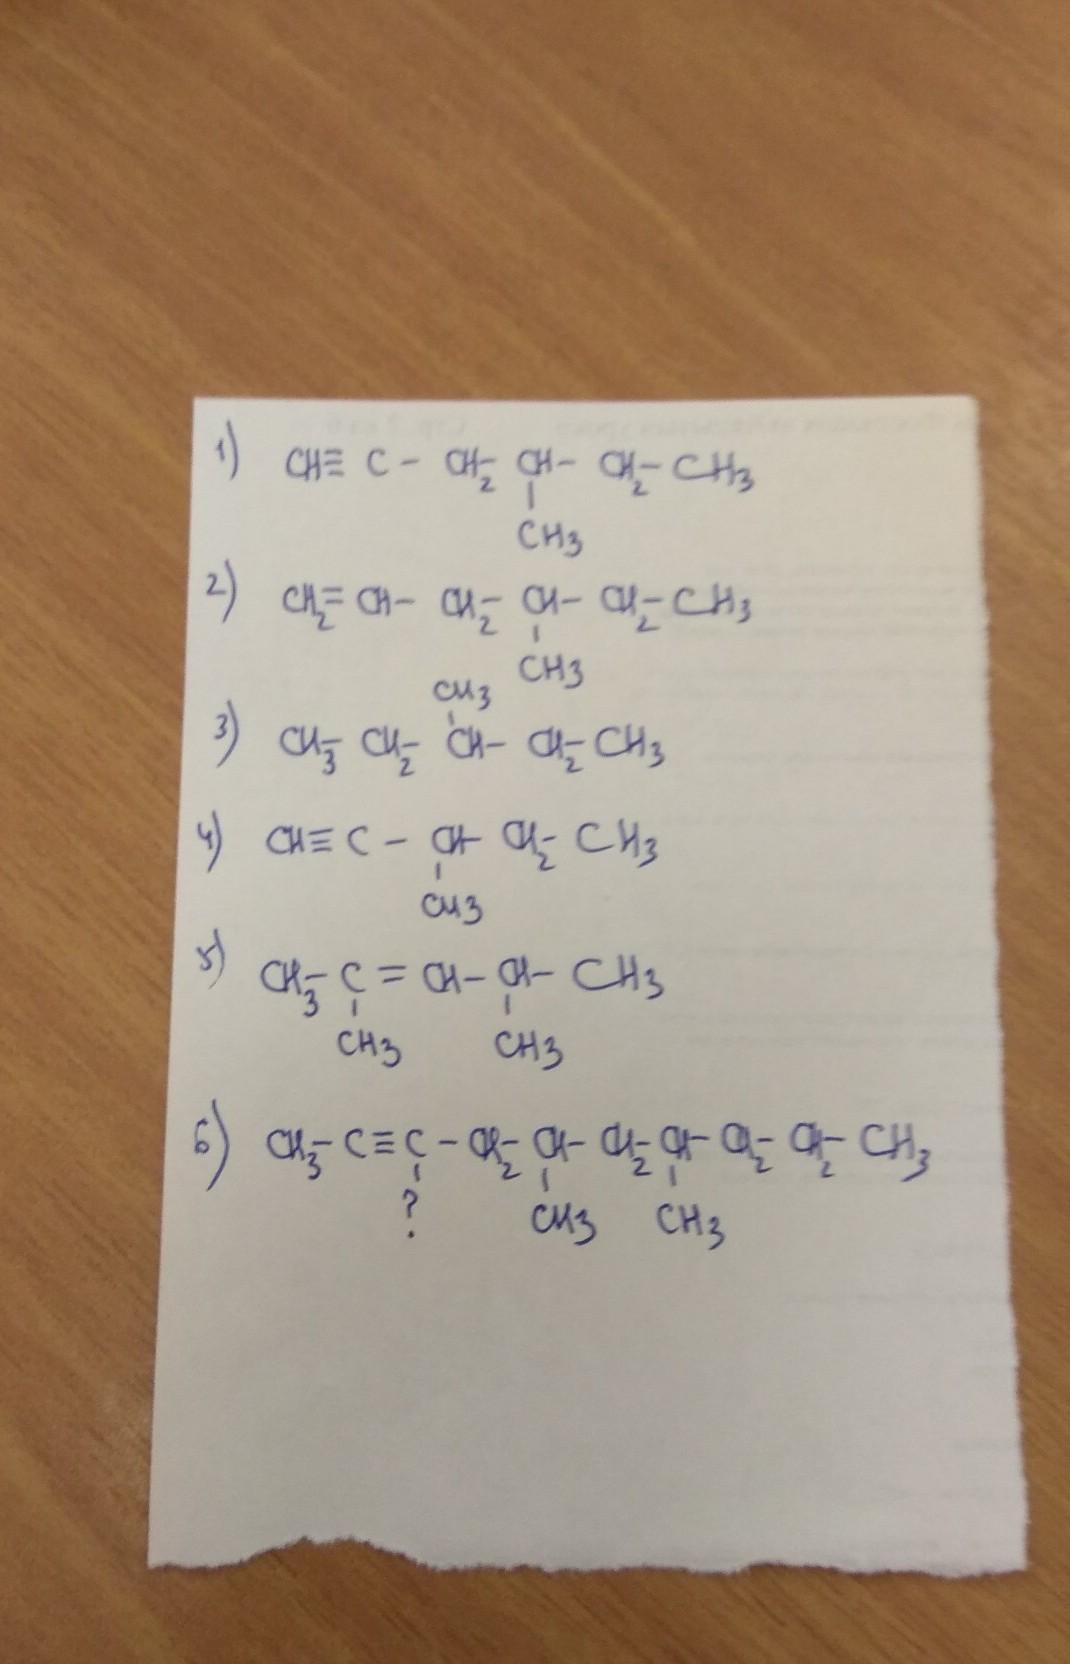 1) CH≡ C - CH2- CH- CH2- CH3
CH3
2) CH2= CH- CH2- CH- CH2- CH3
CH3
CH3
3) CH3- CH2- CH- CH2- CH3
4) CH≡ C - CH- CH2- CH3
CH3
5) CH3- C = CH- CH- CH3
CH3 CH3
6) CH3- C≡C - CH2- CH- CH2- CH- CH2- CH2- CH3
? CH3 CH3